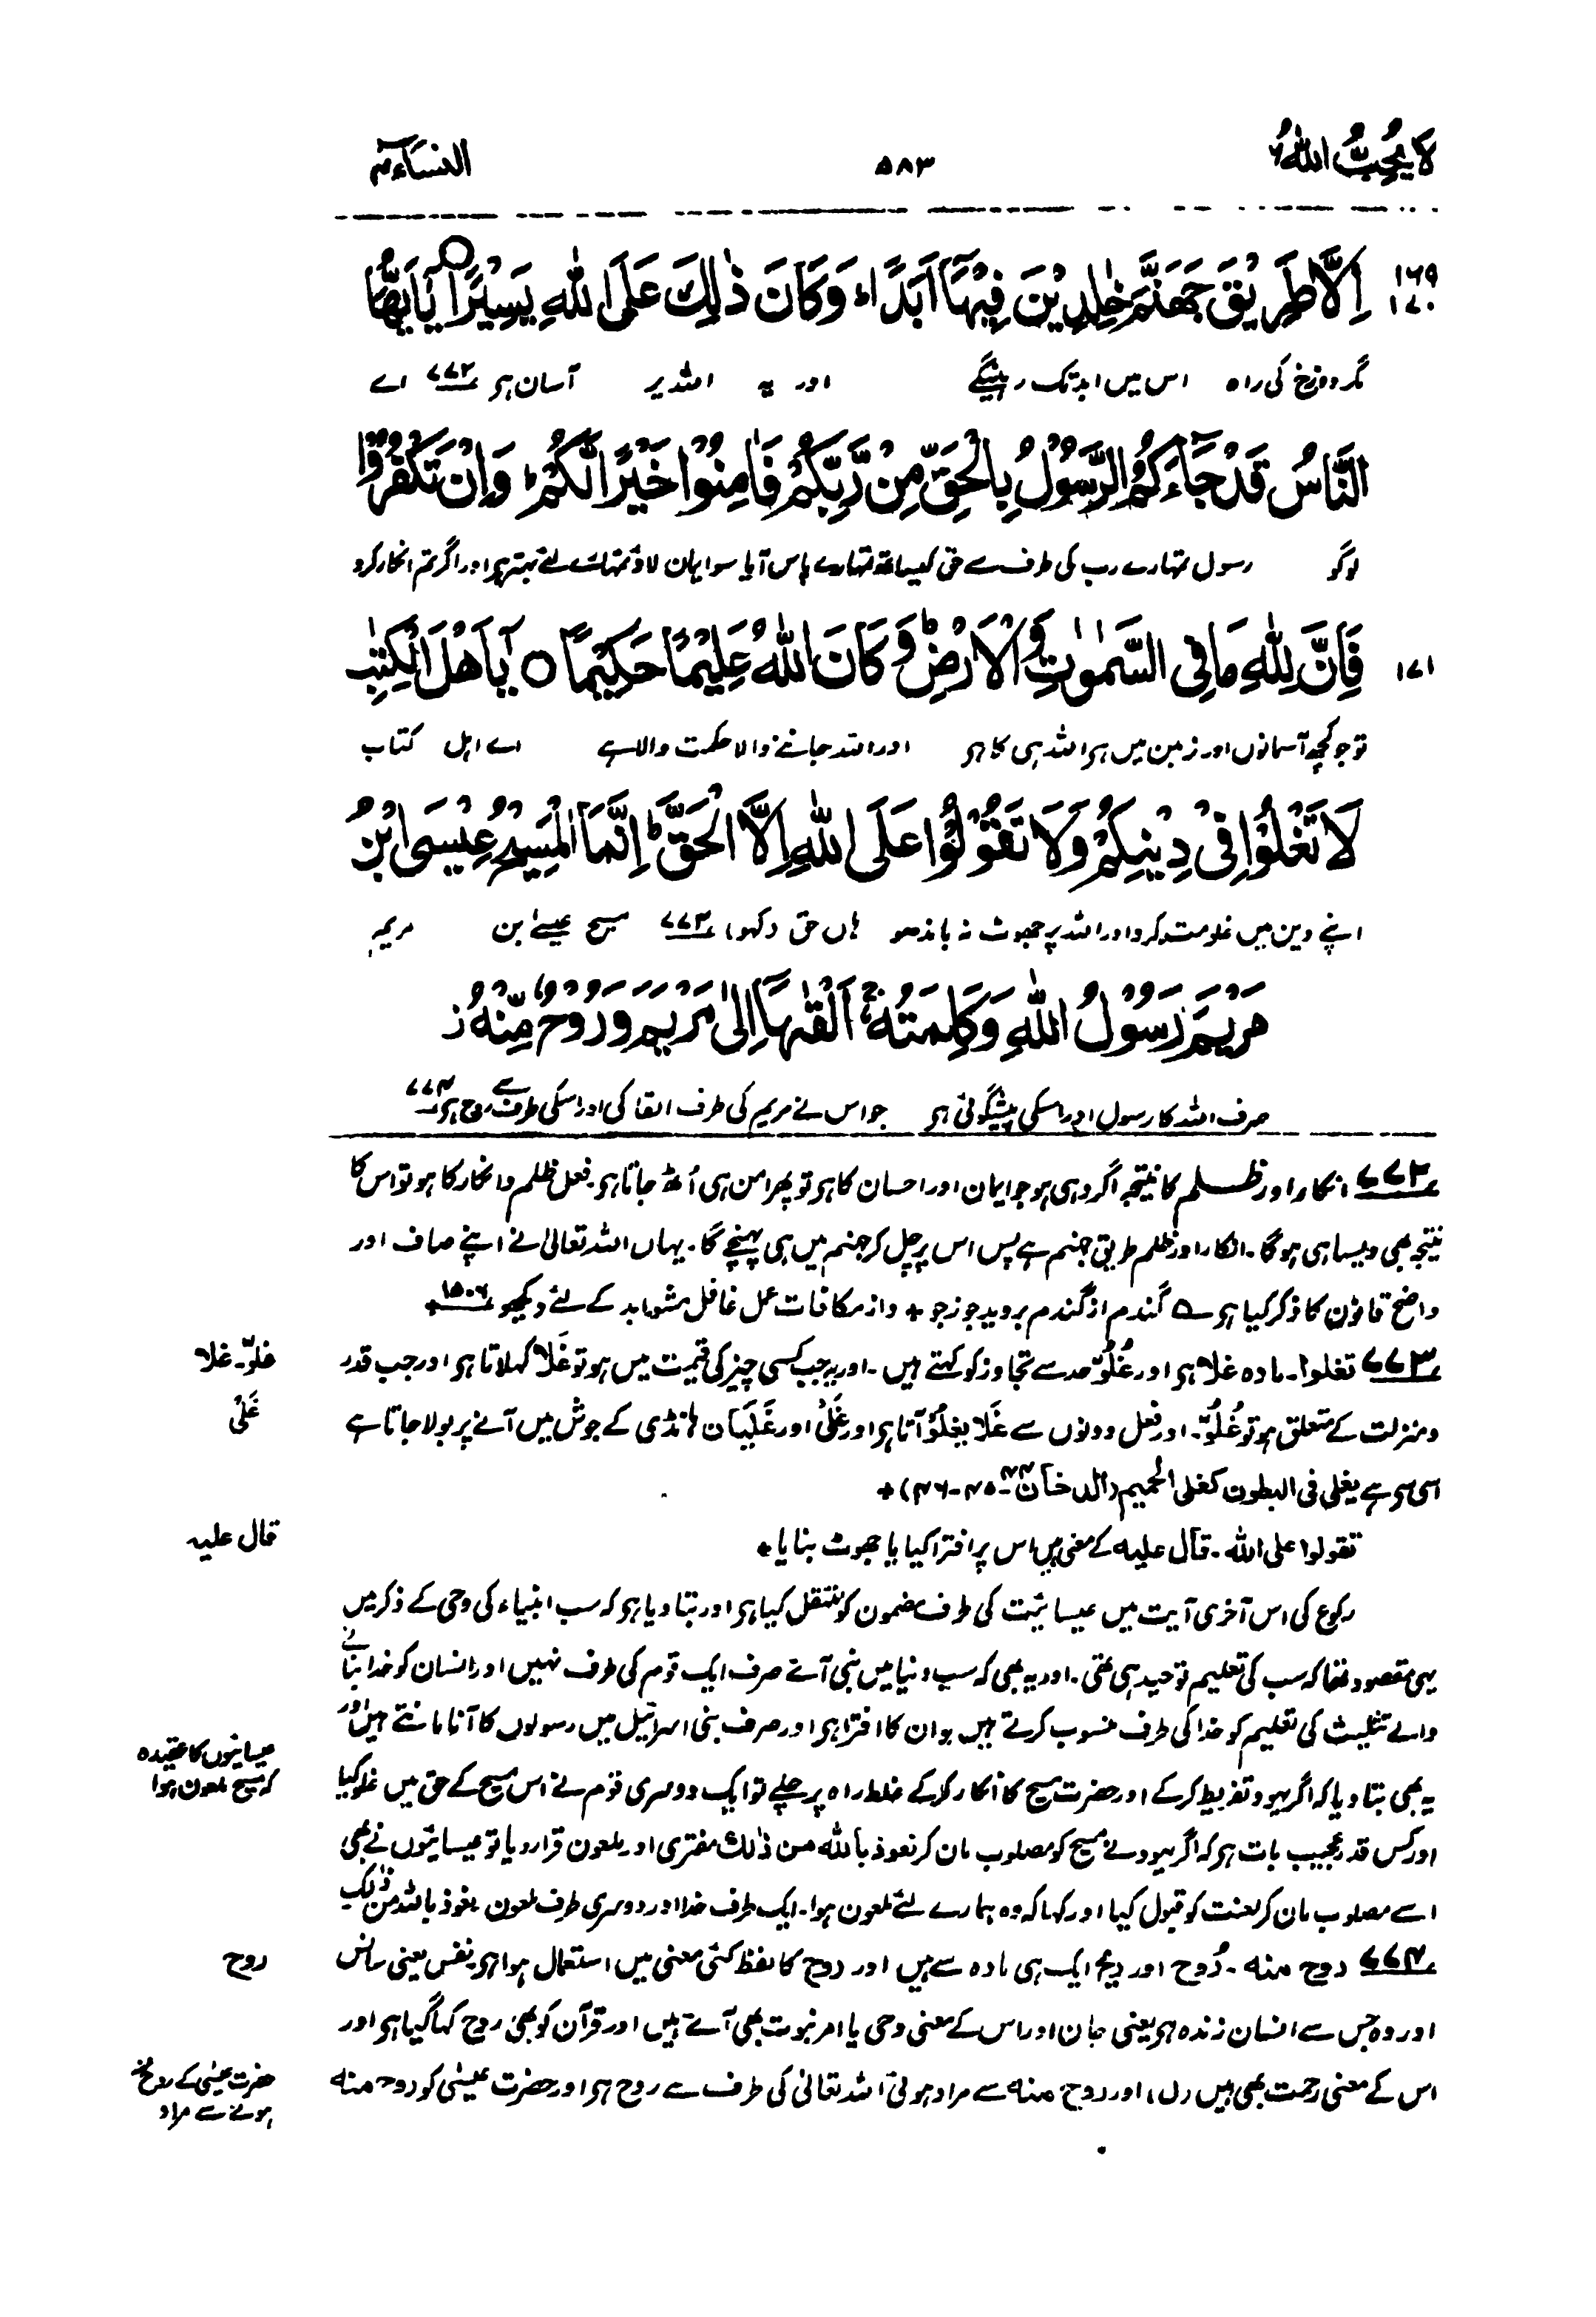 لَا يُحِبُّ اللّٰهُ ۶
۵۸۳
النساء ۴
۱۶۹ اِلَّا طَرِيْقَ جَهَنَّمَ خٰلِدِيْنَ فِيْهَآ اَبَدًا ؕ وَكَانَ ذٰلِكَ عَلَى اللّٰهِ يَسِيْرًا ○ يٰٓاَيُّهَا
۱۷۰
مگر دوزخ کی راہ اس میں ابد تک رہینگے اور یہ اللہ پر آسان ہی ۷۷۲ اے
النَّاسُ قَدْ جَآءَكُمُ الرَّسُوْلُ بِالْحَقِّ مِنْ رَّبِّكُمْ فَاٰمِنُوْا خَيْرًا لَّكُمْ ؕ وَاِنْ تَكْفُرُوْا
لوگو رسول تمہارے رب کی طرف سے حق کیساتھ تمہارے پاس آیا سو ایمان لاؤ تمہارے لئے بہتر ہی اور اگر تم انکار کرو
۱۷۱ فَاِنَّ لِلّٰهِ مَا فِى السَّمٰوٰتِ وَالْاَرْضِ ؕ وَكَانَ اللّٰهُ عَلِيْمًا حَكِيْمًا ○ يٰٓاَهْلَ الْكِتٰبِ
تو جو کچھ آسمانوں اور زمین میں ہی اللہ ہی کا ہی اور اللہ جاننے والا حکمت والا ہے اے اہل کتاب
لَا تَغْلُوْا فِىْ دِيْنِكُمْ وَلَا تَقُوْلُوْا عَلَى اللّٰهِ اِلَّا الْحَقَّ ؕ اِنَّمَا الْمَسِيْحُ عِيْسَى ابْنُ
اپنے دین میں غلو مت کرو اور اللہ پر جھوٹ نہ باندھو ہاں حق (کہو) ۷۷۳ مسیح عیسےٰ بن مریم
مَرْيَمَ رَسُوْلُ اللّٰهِ وَكَلِمَتُهٗ ۚ اَلْقٰهَآ اِلٰى مَرْيَمَ وَرُوْحٌ مِّنْهُ ز
صرف اللہ کا رسول اور اسکی پیشگوئی ہی جو اس نے مریم کی طرف القا کی اور اسکی طرف سے روح ہی ۷۷۴
۷۷۲ انکار اور ظلم کا نتیجہ اگر وہی ہو جو ایمان اور احسان کا ہی تو پھر امن ہی اُٹھ جاتا ہی۔ فعل ظلم و انکار کا ہو تو اس کا
نتیجہ بھی ویسا ہی ہو گا۔ انکار اور ظلم طریق جہنم ہے پس اس پر چل کر جہنم میں ہی پہنچے گا۔ یہاں اللہ تعالیٰ نے اپنے صاف اور
واضح قانون کا ذکر کیا ہی ؎ گندم از گندم بروید جو ز جو + و از مکافات عمل غافل مشو ابد کے لئے دیکھو ۱۵۰۶ +
۷۷۳ تغلوا۔ مادہ غلا ہی اور غُلُوّ حد سے تجاوز کو کہتے ہیں۔ اور یہ جب کسی چیز کی قیمت میں ہو تو غَلَا کہلاتا ہی اور جب قدر
غلوّ۔ غلا
و منزلت کے متعلق ہو تو غُلُوّ۔ اور فعل دونوں سے غَلَا یَغْلُوْ آتا ہی اور غَلْیٌ اور غَلَیَان ہانڈی کے جوش میں آنے پر بولا جاتا ہے
غَلْیٌ
اسی سے ہے یغلی فی البطون کغلی الحمیم (الدخان ۴۴۔ ۴۵۔ ۴۶) +
تقولوا علی اللہ۔ قال علیه کے معنی ہیں اس پر افترا کیا یا جھوٹ بنایا +
قال علیہ
رکوع کی اس آخری آیت میں عیسائیت کی طرف مضمون کو منتقل کیا ہی اور بتا دیا ہی کہ سب انبیاء کی وحی کے ذکر میں
یہی مقصود تھا کہ سب کی تعلیم توحید ہی تھی۔ اور یہ بھی کہ سب دنیا میں نبی آئے صرف ایک قوم کی طرف نہیں اور انسان کو خدا بنانے
والے تثلیث کی تعلیم کو خدا کی طرف منسوب کرتے ہیں یو ان کا افترا ہی اور صرف بنی اسرائیل میں رسولوں کا آنا مانتے ہیں اور
عیسائیوں کا عقیدہ
کہ مسیح ملعون ہوا
یہ بھی بتا دیا کہ اگر یہود تفریط کر کے اور حضرت مسیح کا انکار کر کے غلط راہ پر چلے تو ایک دوسری قوم نے اس مسیح کے حق میں غلو کیا
اور کس قدر عجیب بات ہی کہ اگر یہود نے مسیح کو مصلوب مان کر نعوذ باللہ من ذٰلک مفتری اور ملعون قرار دیا تو عیسائیوں نے بھی
اسے مصلوب مان کر لعنت کو قبول کیا اور کہا کہ وہ ہمارے لئے ملعون ہوا۔ ایک طرف خدا اور دوسری طرف ملعون نعوذ باللہ من ذٰلک
۷۷۴ روح منه۔ رُوح اور ریح ایک ہی مادہ سے ہیں اور روح کا لفظ کئی معنی میں استعمال ہوا ہی نفس یعنی سانس
روح
اور وہ جس سے انسان زندہ ہی یعنی جان اور اس کے معنی وحی یا امر نبوت بھی آتے ہیں اور قرآن کو بھی روح کہا گیا ہی اور
اس کے معنی رحمت بھی ہیں (ل) اور روح منه سے مراد ہوئی اللہ تعالیٰ کی طرف سے روح ہی اور حضرت عیسٰی کو روح منه
حضرت عیسٰی کے روح منہ
ہونے سے مراد